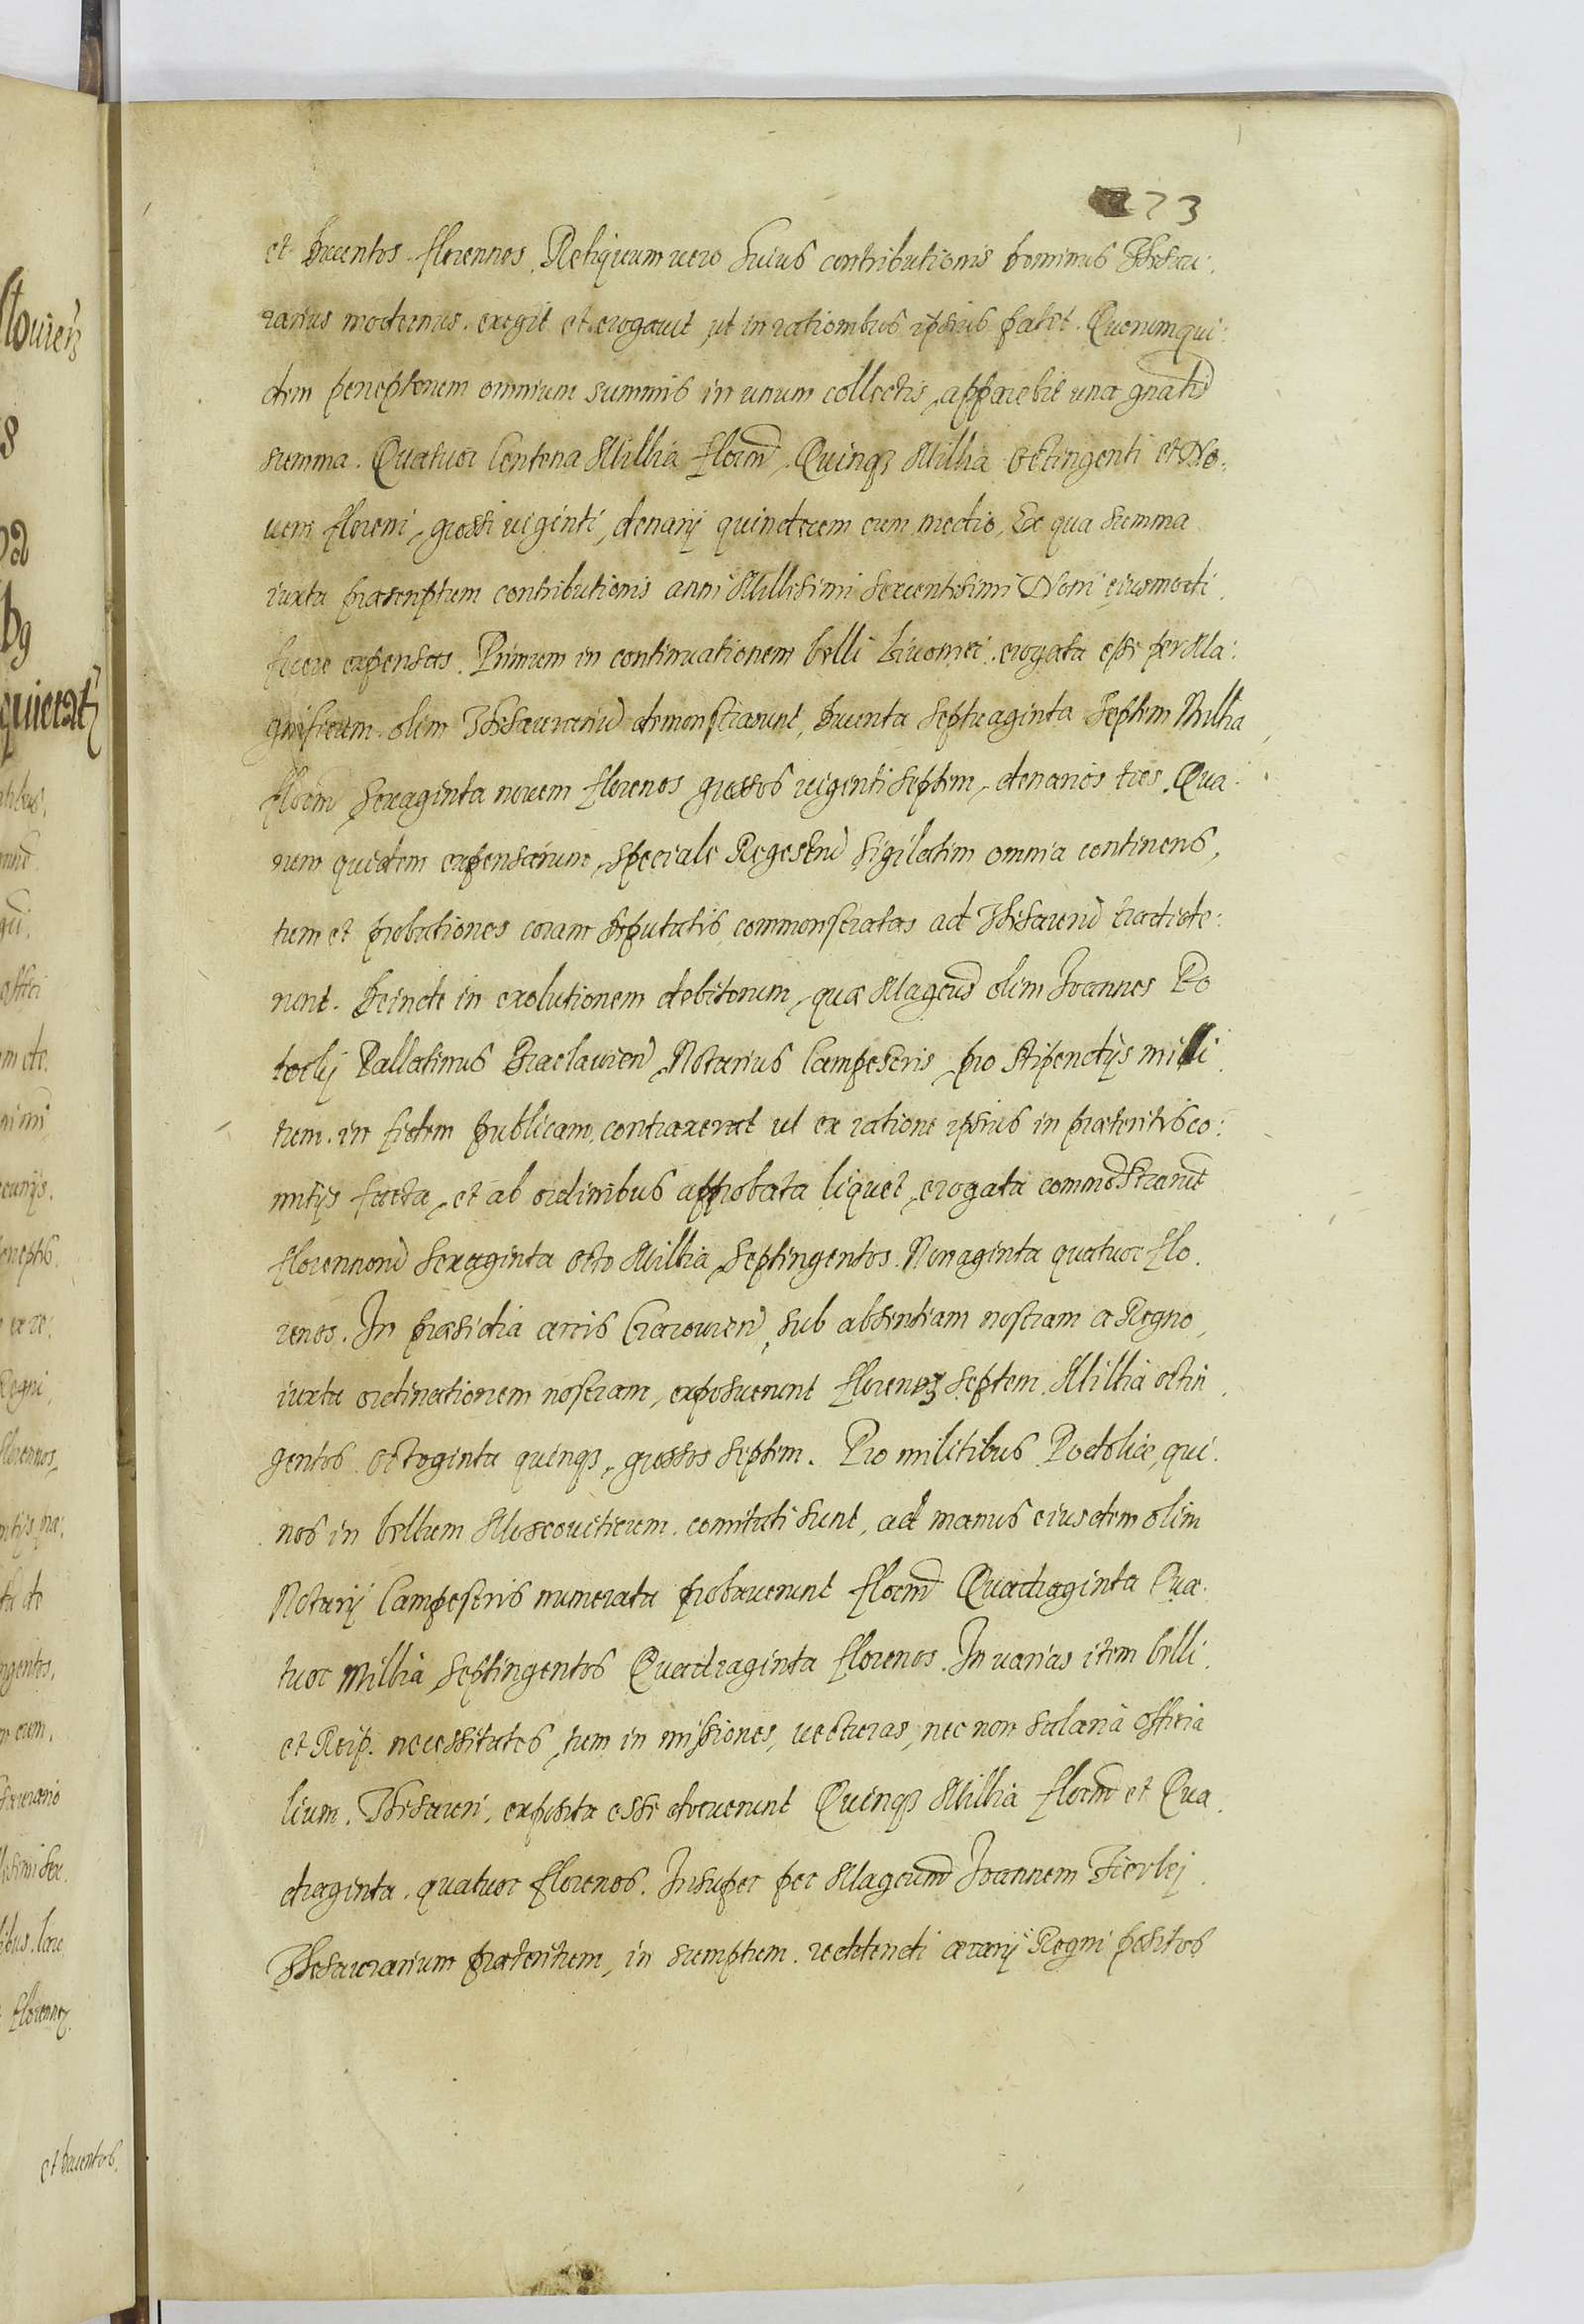 273
et Ducentos florennos. Reliquum uero huius contributionis Dominus Thesau:
rarius modernus exegit et erogauit, ut in rationibus ipsius patet. Quorum qui:
dem perceptorum omnium summis in unum collectis, apparebit una gnalis
summa. Quatuor Centena Millia floren, Quinqz Millia Octingenti et No:
uem floreni, grossi uiginti, denarij quindecem cum medio. Ex qua summa
iuxta præscriptum contributionis anni Millesimi Sexcentesimi Noni eiusmodi
fecere expensas. Primum in continuationem belli Liuonici erogata esse per Ma:
gnificum olim Thesaurariũ demonstrarunt, Ducenta Septuaginta Septem Millia
floren Sexaginta novem florenos grossos uiginti septem, denarios tres. Qua:
rum quidem expensarum, speciale Regestrũ sigilatim omnia continens,
tum et probationes coram Deputatis commonstratas ad Thesaurũ tradide:
runt. Deinde in exolutionem debitorum, quæ Magcus olim Joannes Po
tocky Pallatinus Braclauien, Notarius Campestris, pro stipendijs mili
tum in fidem publicam contraxerat ut ex ratione ipsius in præteritis co:
mitijs facta, et ab ordinibus approbata liquet, erogata commõstrarunt
florennorũ Sexaginta octo Millia, Septingentos Nonaginta quatuor flo
renos. In præsidia arcis Cracouien, sub absentiam nostram a Regno,
iuxta ordinationem nostram, exposuerunt florenoz Septem Millia octin
gentos octoginta quinqz, grossos septem. Pro militibus Podoliæ, qui
nos in bellum Moscouiticum comitati sunt, ad manus eiusdem olim
Notarij Campestris numerata probauerunt floren Quadraginta Qua
tuor Millia Septingentos Quadraginta florenos. In uarias item belli
et Reip. necessitates, tum in missiones, uecturas, nec non salaria officia
lium Thesauri, exposita esse docuerunt Quinqz Millia floren et Qua
draginta quatuor florenos. Insuper per Magcum Joannem Fierlej
Thesaurarium præteritum, in sumptum reddendi ærarij Regni positos
et Ducentos.